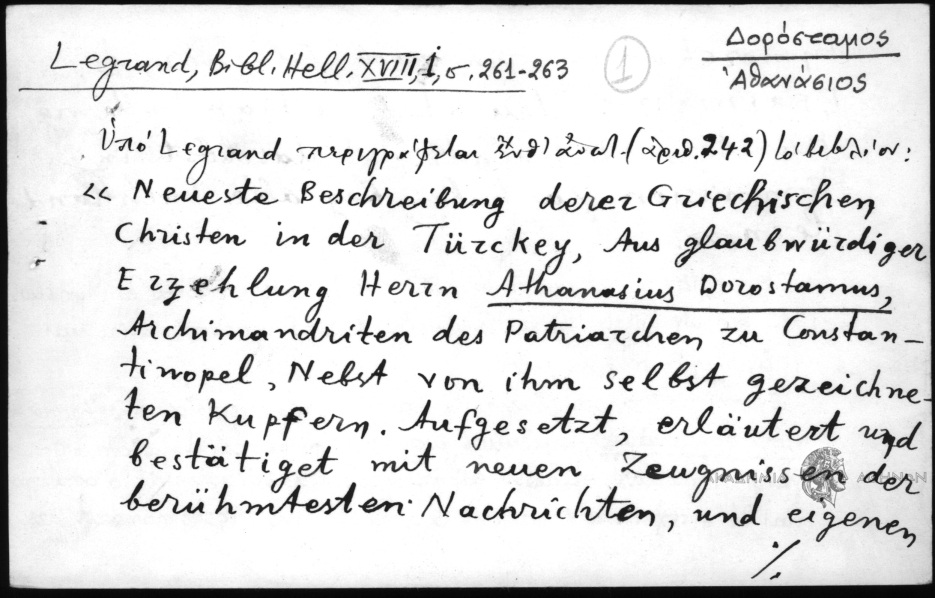 Δορόσταμος
Ἀθανάσιος
Legrand, Bibl. Hell. XVIII, 1, σ. 261-263
1
Ὑπό Legrand περιγράφεται (ἀριθ. 242) τό βιβλίον:
<< Neueste Beschreibung derer Griechischen
Christen in der Türckey, Aus glaubwürdiger
Erzehlung Herrn Athanasius Dorostamus,
Archimandriten des Patriarchen zu Constan-
tinopel, Nebst von ihm selbst gezeichne-
ten Kupfern. Aufgesetzt, erläutert und
bestätiget mit neuen Zeugnissen der
berühmtesten Nachrichten, und eigenen
./.